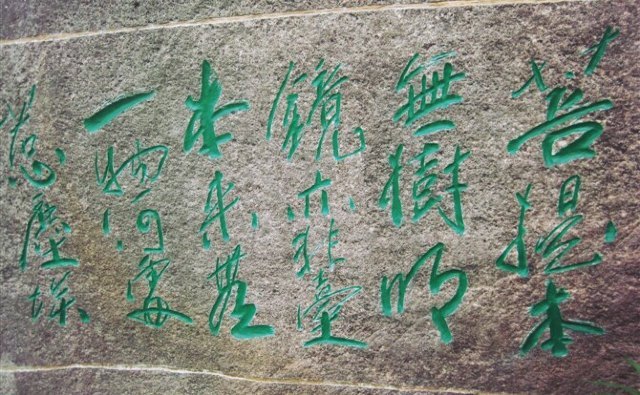 菩提本
無樹明
鏡亦非臺
本來無
一物何處
惹塵埃